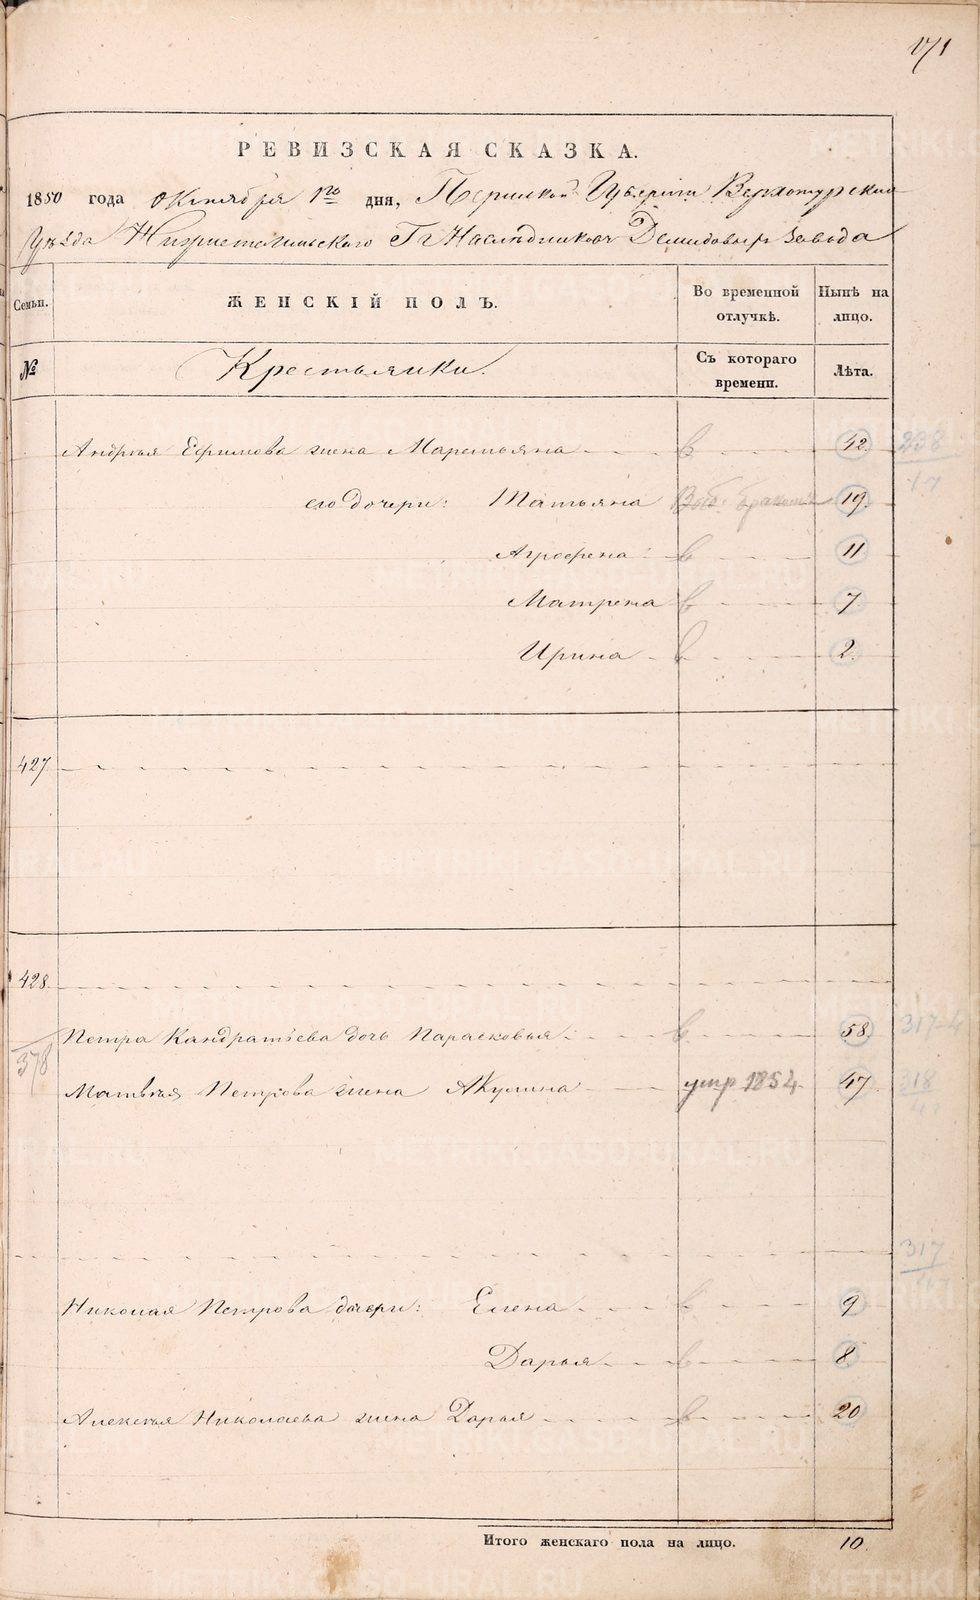 171
РЕВИЗСКАЯ СКАЗКА.
1850 года октября 1го дня, Пермской Губернiи Верхотурскаго
Уѣзда Нижнетагильскаго Гг Наслѣдниковъ Демидовыхъ завода
Семьи. ЖЕНСКІЙ ПОЛЪ. Во временной отлучкѣ. Нынѣ на лицо.
№ Крестьянки. Съ котораго времени. Лѣта.
Андрея Ефимова жена Маремьяна в 42 238
его дочери: Татьяна браком 19
Агрофена в 11
Матрена в 7
Ирина в 2
427
428
Петра Кандратьева дочь Парасковья в 58 317
378
Матвѣя Петрова жена Акулина умр 1854 47 318
317
Николая Петрова дочери: Елена в 9
Дарья в 8
Алексѣя Николаева жена Дарья в 20
Итого женскаго пола на лицо. 10.
METRIKI.GASO-URAL.RU